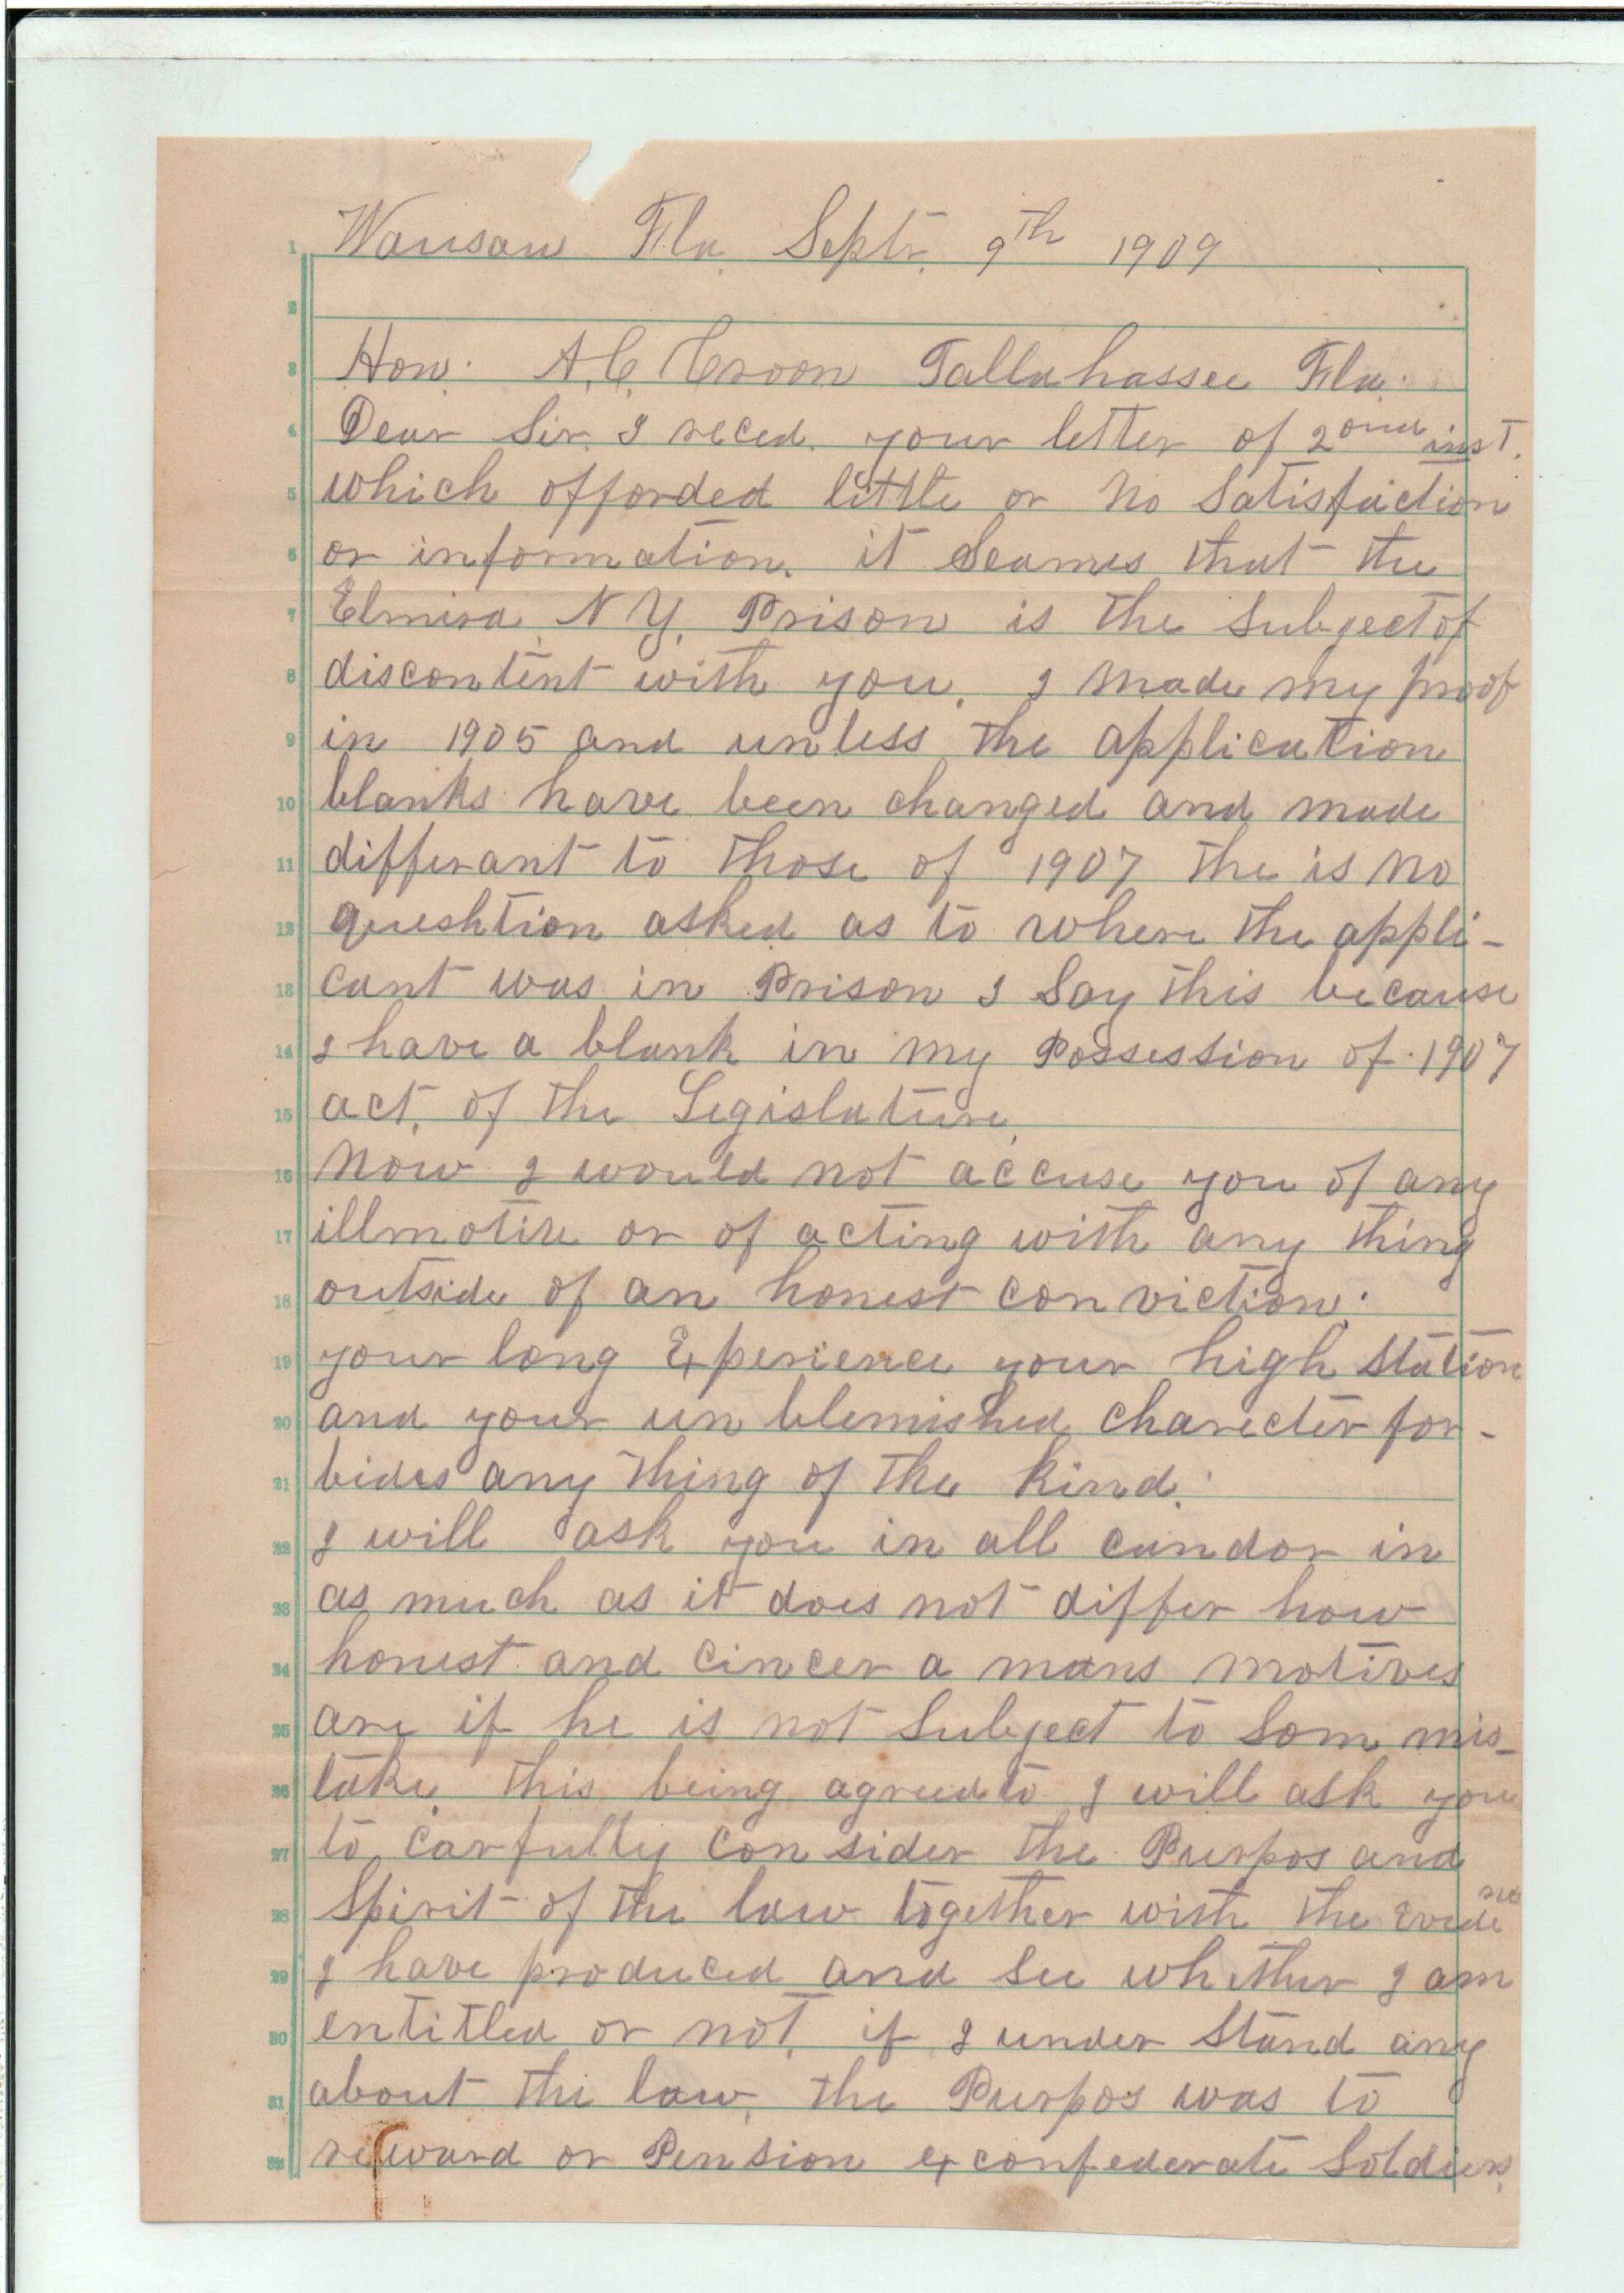 Wausau Fla Septr. 9th 1909
Hon. A.C. Croom Tallahassee Fla.
Dear Sir. I reced. your letter of 2ond inst.
which afforded little or no Satisfaction
or information. it Seames that the
Elmira, N.Y. Prison is the Subject of
discontent with you. I made my proof
in 1905 and unless the application
blanks have been changed and made
differant to those of 1907 the is no
queshtion asked as to where the appli-
cant was in Prison I Say this because
I have a blank in my Possession of 1907
act. of the Legislature.
Now I would not accuse you of any
illmotive or of acting with any thing
outside of an honest conviction.
your long Experience your high Station
and your un blemished charecter for-
bides any thing of the kind.
I will ask you in all candor in
as much as it does not differ how
honest and Cincer a mans motives
are if he is not Subject to Som mis-
take. this being agreed to I will ask you
to carfully con sider the Purpos and
Spirit of the law together with the Evidence
I have produced and See whether I am
entitled or not. if I under Stand any
about the law, the Purpos was to
reward or Pension ex confederate Soldiers,
1
2
3
4
5
6
7
8
9
10
11
12
13
14
15
16
17
18
19
20
21
22
23
24
25
26
27
28
29
30
31
32